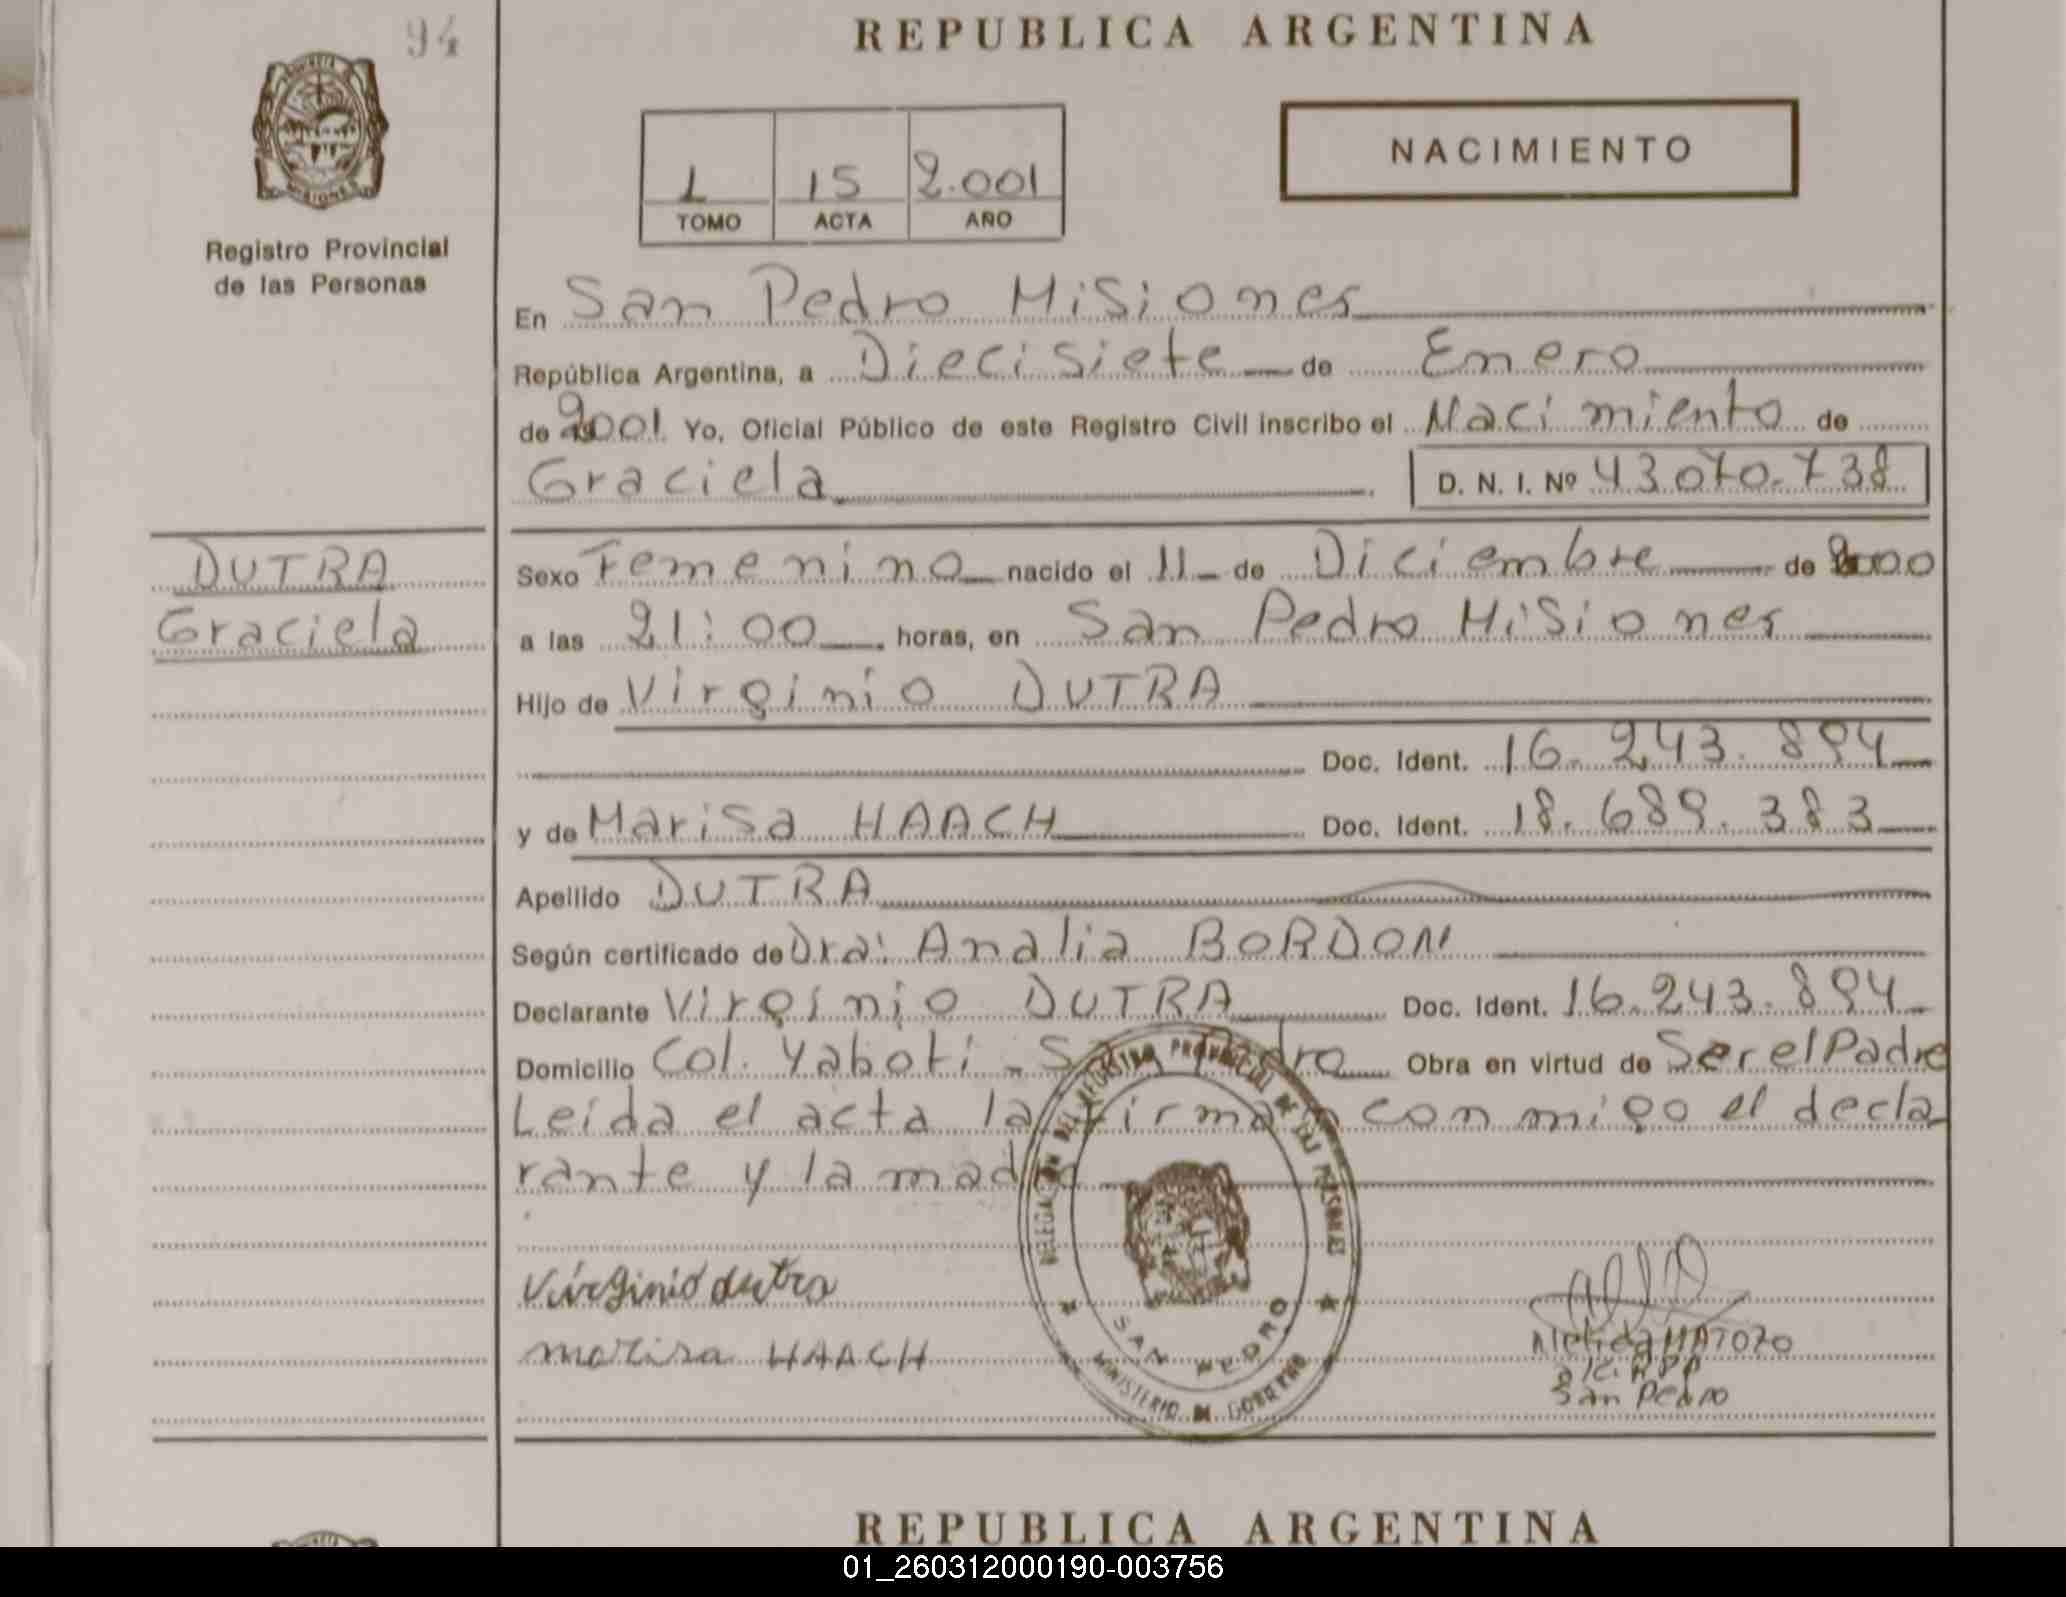 94
REPUBLICA ARGENTINA
Registro Provincial
de las Personas
1 15 2.001
TOMO ACTA AÑO
NACIMIENTO
En San Pedro Misiones
República Argentina, a Diecisiete de Enero
de 2001 Yo, Oficial Público de este Registro Civil inscribo el Nacimiento de
Graciela D. N. I. Nº 43.070.738
DUTRA
Graciela
Sexo Femenino nacido el 11 de Diciembre de 2000
a las 21:00 horas, en San Pedro Misiones
Hijo de Virginio DUTRA
Doc. Ident. 16.243.894
y de Marisa HAACH Doc. Ident. 18.689.383
Apellido DUTRA
Según certificado de Dra: Analia BORDON
Declarante Virginio DUTRA Doc. Ident. 16.243.894
Domicilio Col. Yaboti - San Pedro Obra en virtud de Ser el Padre
Leida el acta la firman conmigo el decla
rante y la madre
DELEGACION DEL REGISTRO PROVINCIAL DE LAS PERSONAS
SAN PEDRO
MINISTERIO DE GOBIERNO
Virginio dutra
marisa HAACH
Nelida MATOZO
San Pedro
REPUBLICA ARGENTINA
01_260312000190-003756